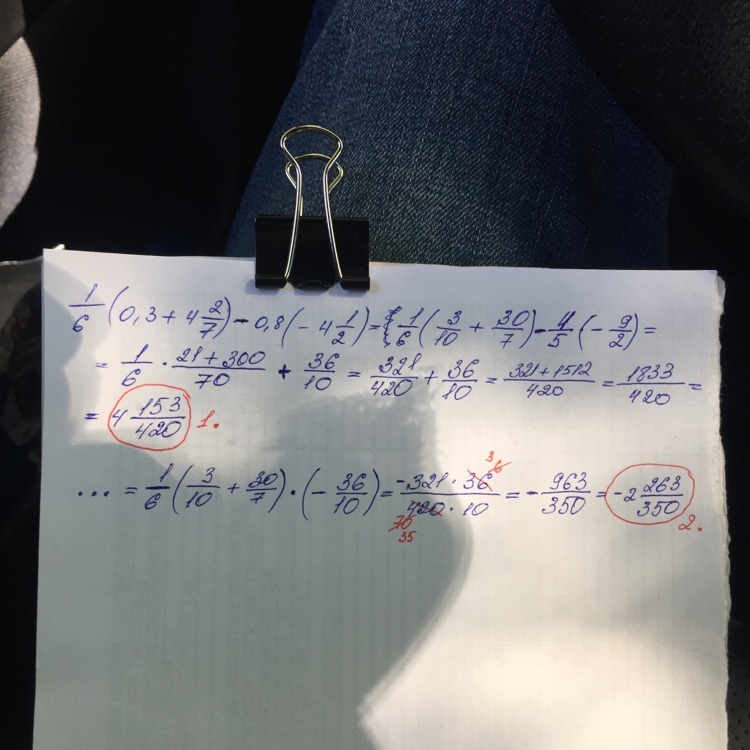 1/6 (0,3 + 4 2/7) - 0,8 (- 4 1/2) = 1/6 (3/10 + 30/7) - 4/5 (- 9/2) =
= 1/6 · 21+300/70 + 36/10 = 321/420 + 36/10 = 321+1512/420 = 1833/420 =
= 4 153/420 1.
... = 1/6 (3/10 + 30/7) · (- 36/10) = -321 · 36 3 6/420 · 10 70 35 = - 963/350 = -2 263/350 2.